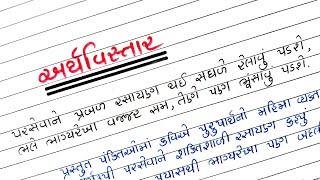 અર્થવિસ્તાર
પરસેવાને પ્રબળ રસાયણ થઈ સઘળે રેલાવું પડશે,
ભલે ભાગ્યરેખા વજ્જર સમ, તેણે પણ ભૂંસાવું પડશે.
પ્રસ્તુત પંક્તિઓમાં કવિએ પુરુષાર્થનો મહિમા વ્યક્ત
પરસેવાને શક્તિશાળી રસાયણ કહ્યું
ભાગ્યરેખા પણ બદલ